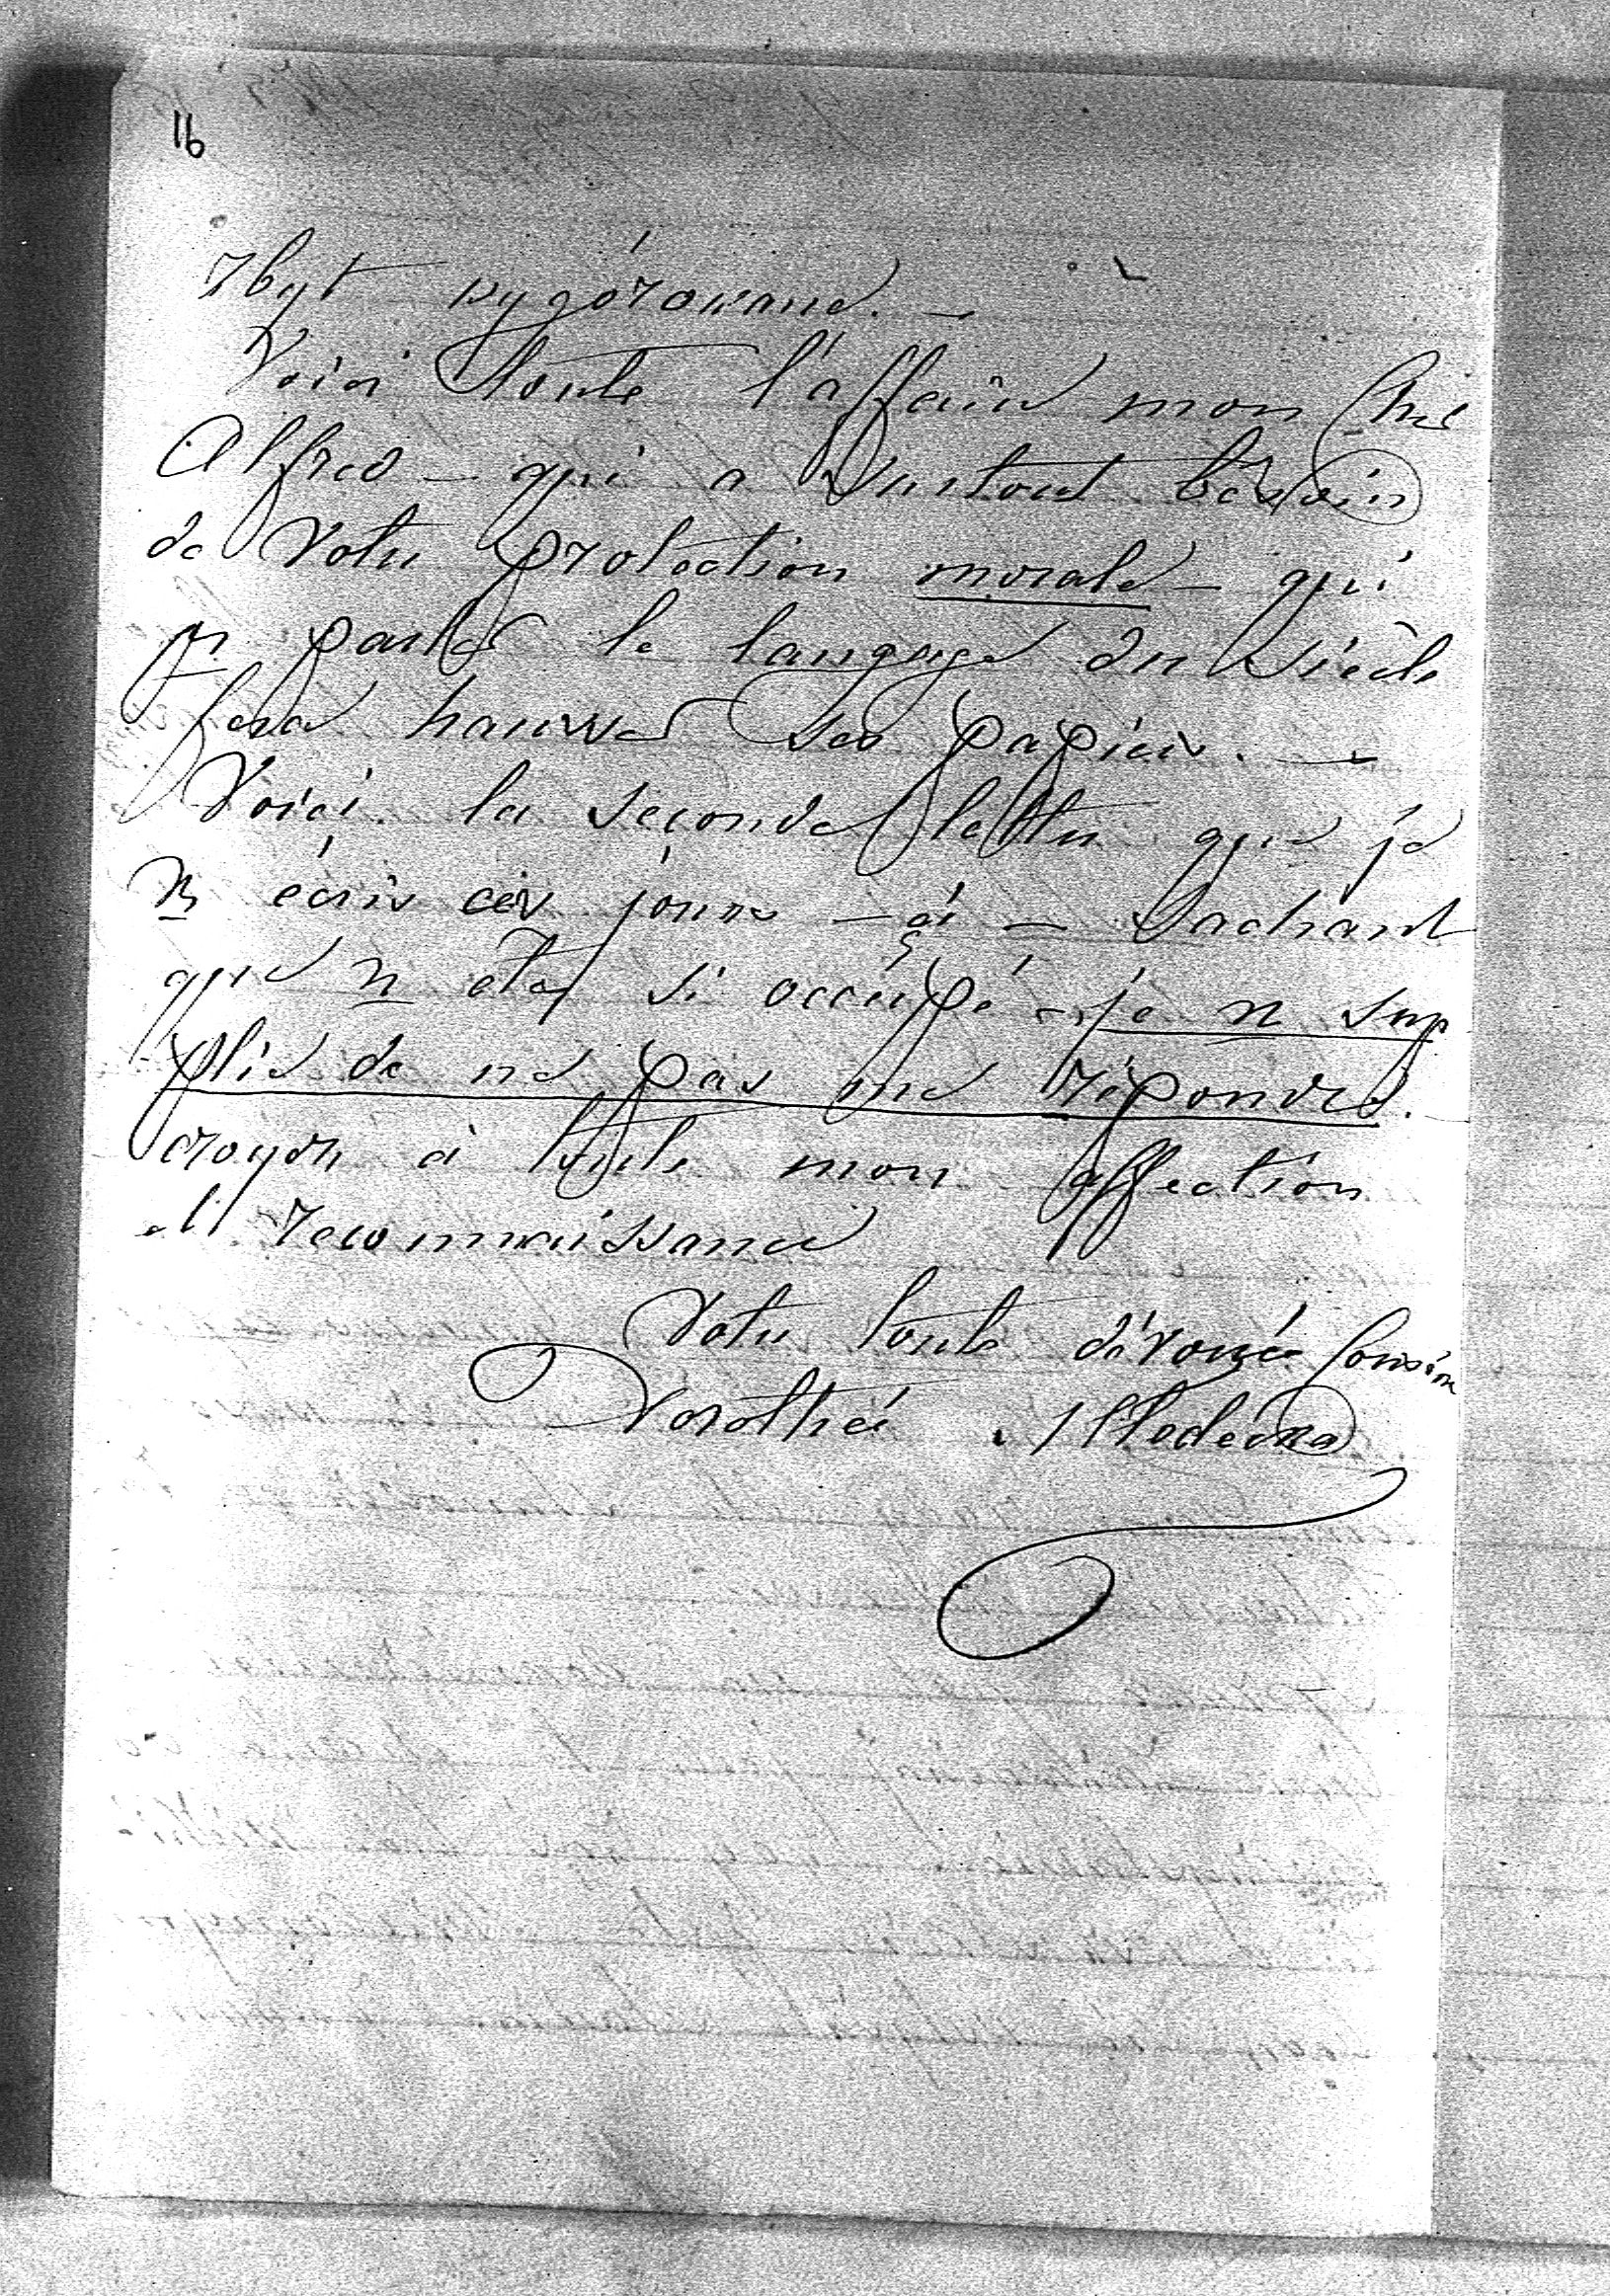 16
zbyt wygórowane. –
Voici toute l'affaire mon cher
Alfred – qui a surtout besoin
de votre protection morale – qui
pr parler le langage du Siècle
fera hausser ses papiers. –
Voici la seconde lettre que je
vs écris ces jours – ci – Sachant
que vs etes si occupé – je vs sup
plie de ne pas me répondre.
croyez à toute mon affection
et reconnaissance
Votre toute dévouée Cousine
Dorothée